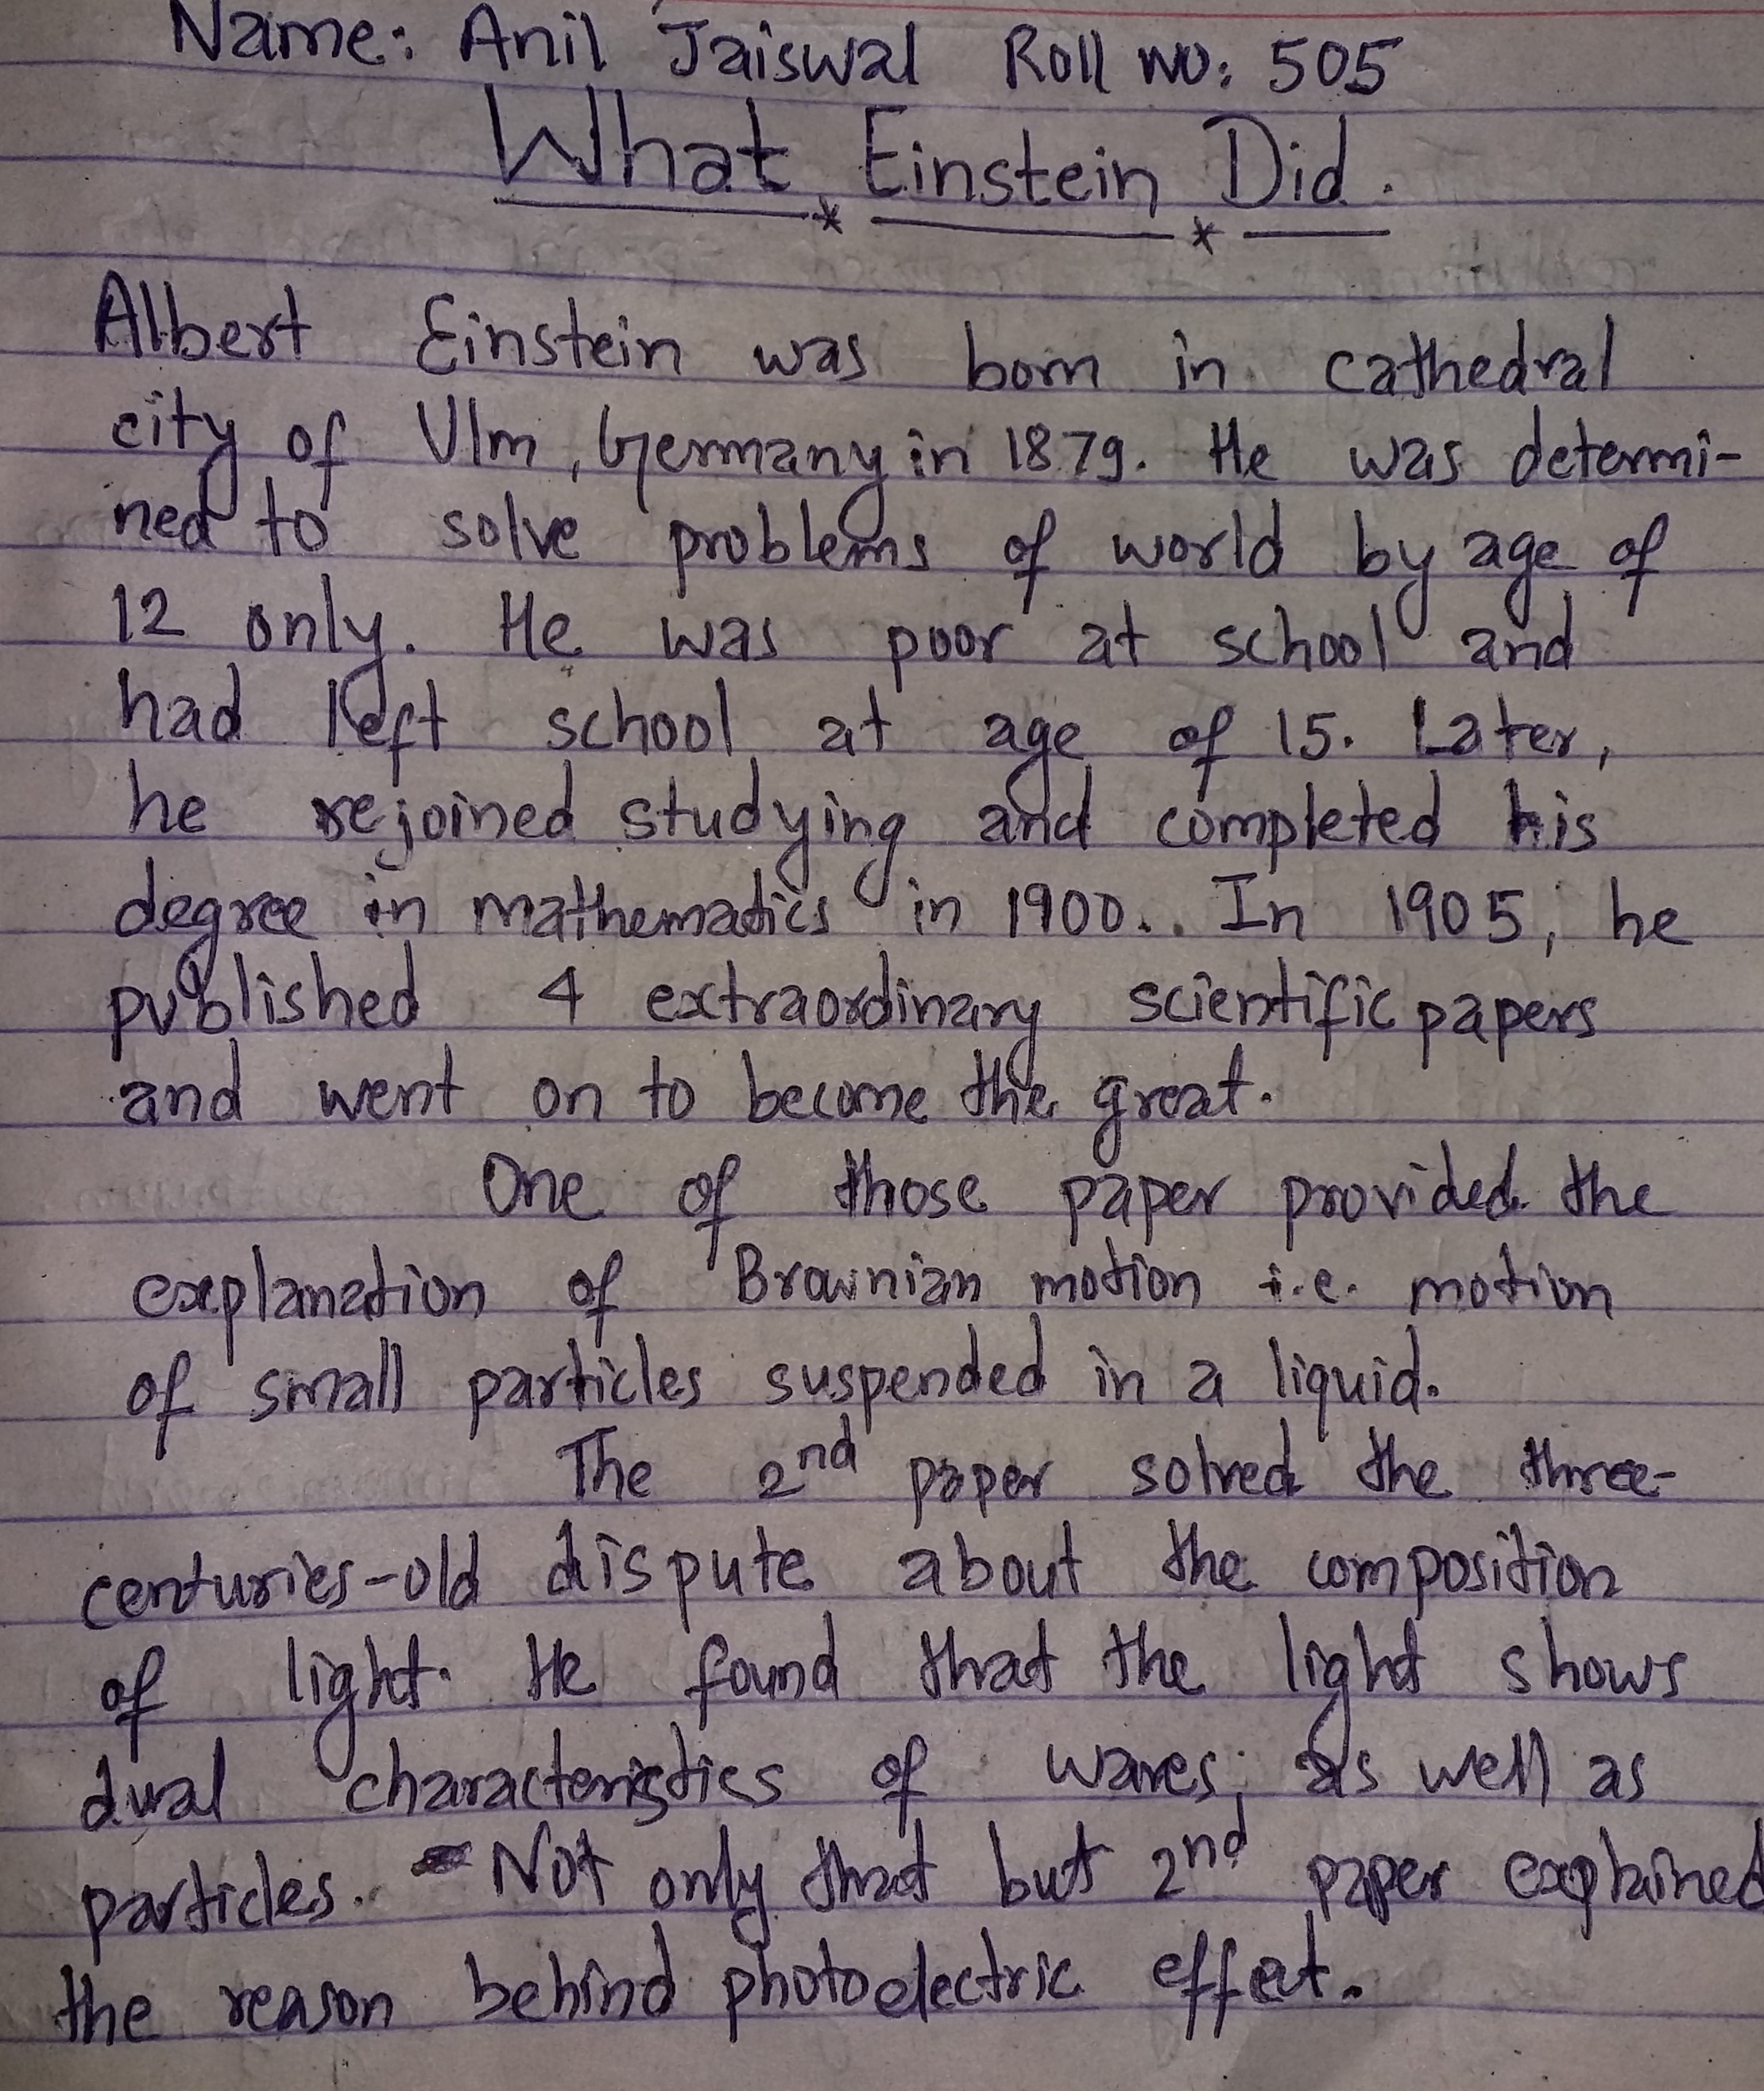 Name: Anil Jaiswal Roll NO: 505
What Einstein Did.
Albert Einstein was born in cathedral
city of Ulm, Germany in 1879. He was determi-
ned to solve problems of world by age of
12 only. He was poor at school and
had left school at age of 15. Later,
he rejoined studying and completed his
degree in mathematics in 1900.. In 1905, he
published 4 extraordinary scientific papers
and went on to become the great.
One of those paper provided the
explanation of Brownian motion i.e. motion
of small particles suspended in a liquid.
The 2nd paper solved the three-
centuries-old dispute about the composition
of light. He found that the light shows
dual characteristics of waves, as well as
particles. Not only that but 2nd paper explained
the reason behind photoelectric effect.